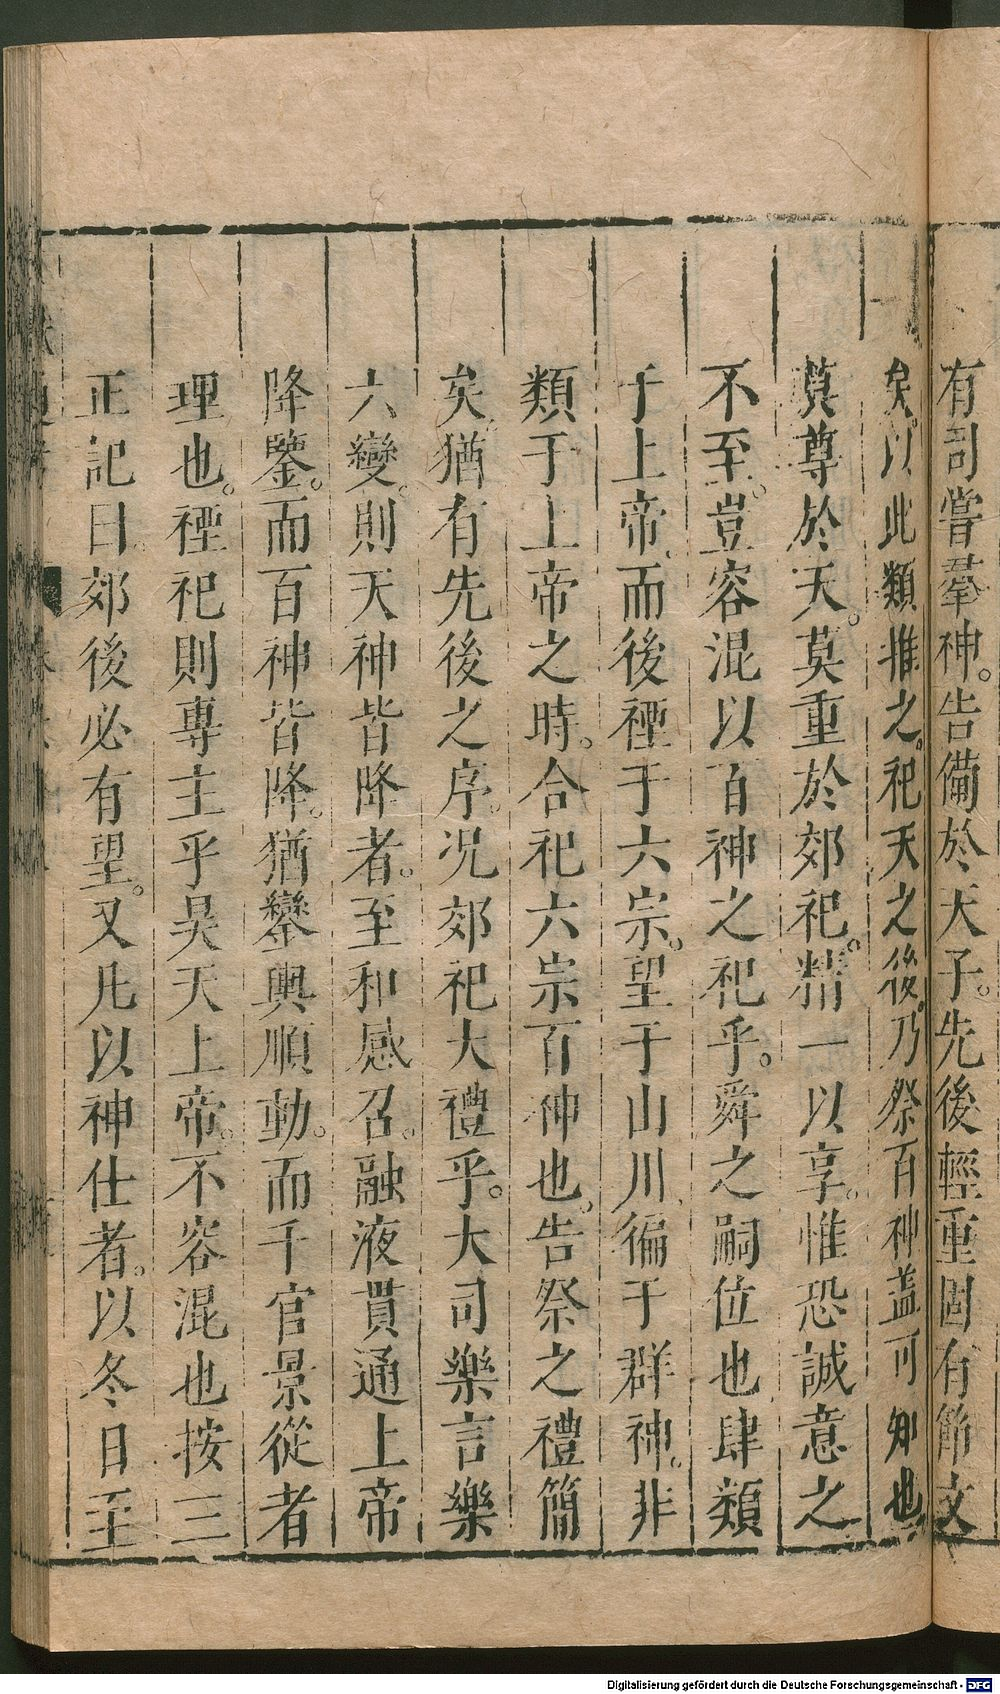 有司嘗羣神。告備於天子。先後輕重固有節文
矣。以此類推之。祀天之後。乃祭百神盖可知也
莫尊於天。莫重於郊祀。精一以享。惟恐誠意之
不至。豈容混以百神之祀乎。舜之嗣位也肆類
于上帝、而後禋于六宗。望于山川、徧于群神。非
類于上帝之時。合祀六宗百神也。告祭之禮簡
矣。猶有先後之序。况郊祀大禮乎。大司樂言樂
六變。則天神皆降者。至和感召。融液貫通上帝
降鑒。而百神皆降。猶鑾輿順動。而千官景從者
理也。禋祀則專主乎昊天上帝。不容混也按三
正記曰。郊後必有望。又凡以神仕者。以冬日至
Digitalisierung gefördert durch die Deutsche Forschungsgemeinschaft - DFG